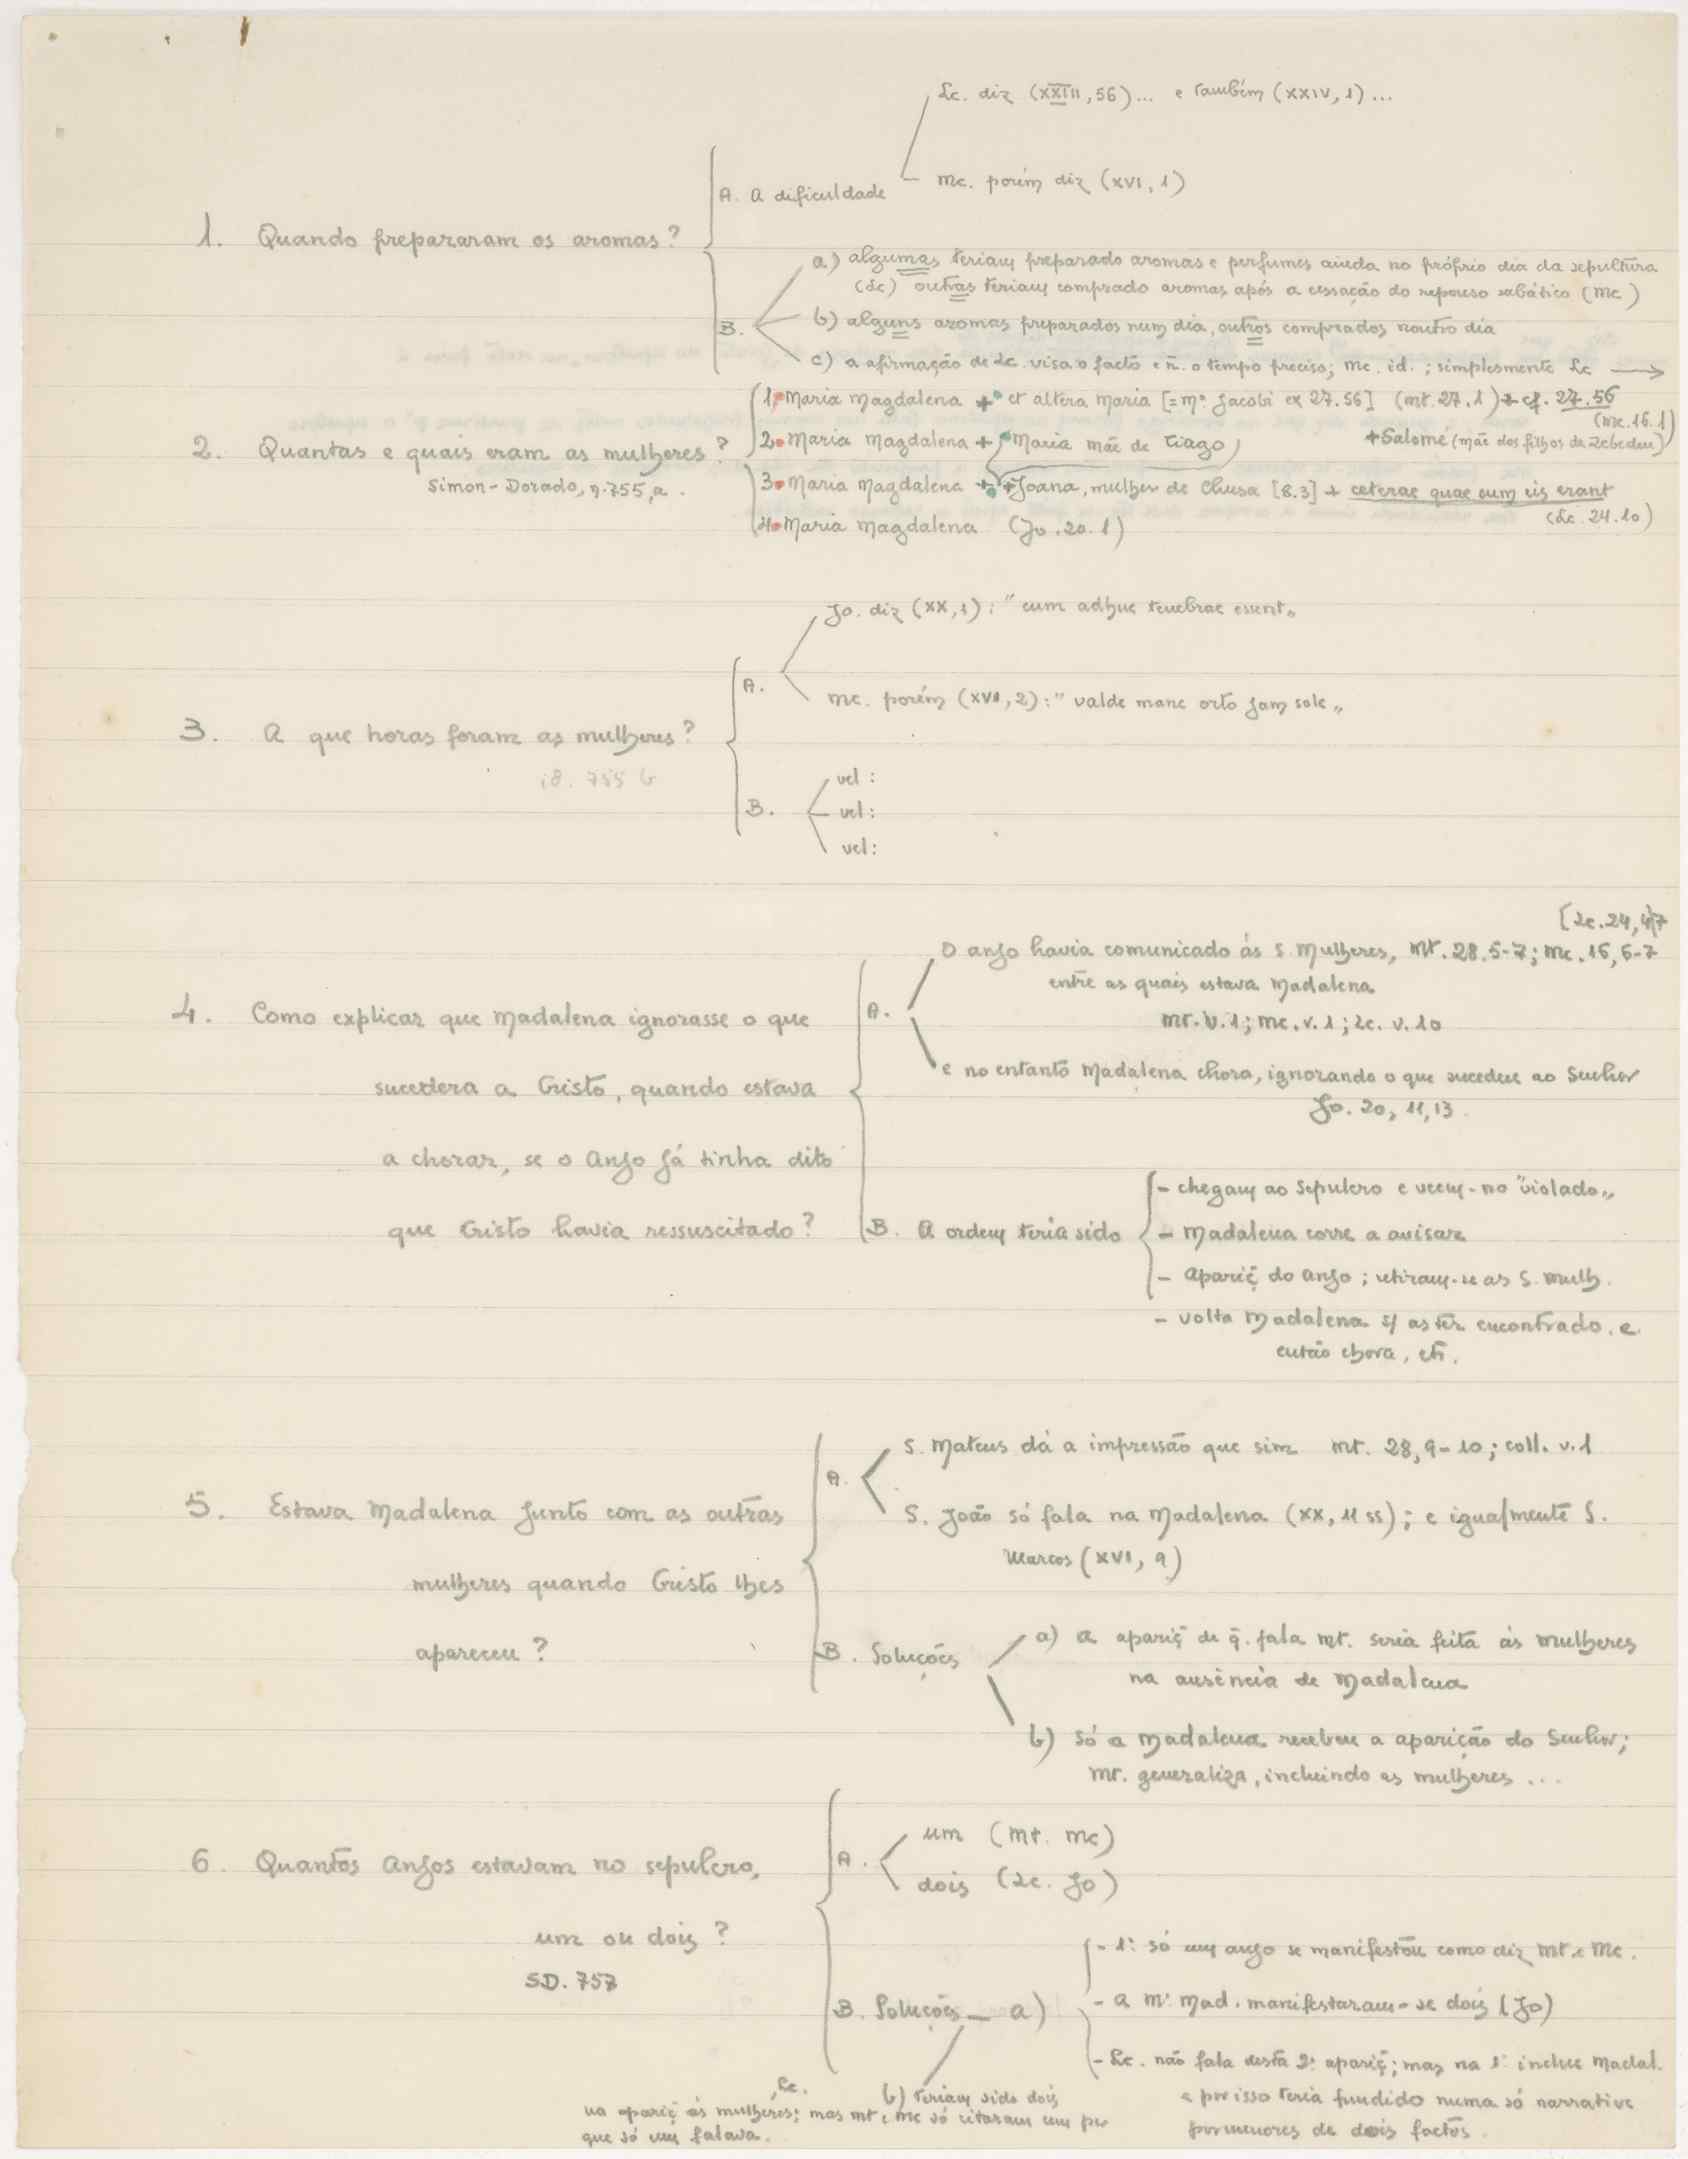 Lc. diz (XXIII, 56)... e também (XXIV, 1)...
Mc. porém diz (XVI, 1)
A. A dificuldade
1. Quando prepararam os aromas?
a) algumas teriam preparado aromas e perfumes ainda no próprio dia da sepultura
(Lc) outras teriam comprado aromas após a cessação do repouso sabático (Mc)
B.
b) alguns aromas preparados num dia, outros comprados noutro dia
c) a afirmação de Lc. visa o facto e ñ. o tempo preciso; Mc. id.; simplesmente Lc →
1. Maria Magdalena + et altera Maria [= Mª Jacobi ex 27.56] (Mt. 27.1) cf. 27.56
(Mc. 16.1)
2. Maria Magdalena + Maria mãe de Tiago + Salomé (mãe dos filhos de Zebedeu)
2. Quantas e quais eram as mulheres?
Simon-Dorado, n. 755, a.
3. Maria Magdalena + + Joana, mulher de Chusa [8.3] + ceterae quae cum eis erant
(Lc. 24.10)
4. Maria Magdalena (Jo. 20. 1)
Jo. diz (XX, 1): "cum adhuc tenebrae essent"
A.
Mc. porém (XVI, 2): "valde mane orto jam sole"
3. A que horas foram as mulheres?
ib. 755 b
vel:
B. vel:
vel:
[Lc. 24, 4]7
O anjo havia comunicado às S. Mulheres, Mt. 28. 5-7; Mc. 16, 6-7
entre as quais estava Madalena
A.
4. Como explicar que Madalena ignorasse o que
Mt. v. 1; Mc. v. 1; Lc. v. 10
e no entanto Madalena chora, ignorando o que sucedeu ao Senhor
sucedera a Cristo, quando estava
Jo. 20, 11, 13.
a chorar, se o Anjo já tinha dito
- chegam ao Sepulcro e veem-no "violado"
que Cristo havia ressuscitado?
B. A ordem teria sido
- Madalena corre a avisar
- Apariç̃ do anjo; retiram-se as S. Mulh.
- volta Madalena s/ as ter encontrado. e
então chora, etc.
S. Mateus dá a impressão que sim Mt. 28, 9-10; coll. v. 1
A.
5. Estava Madalena junto com as outras
S. João só fala na Madalena (XX, 11 ss); e igualmente S.
Marcos (XVI, 9)
mulheres quando Cristo lhes
apareceu?
B. Soluções
a) a apariç̃ de q̃. fala Mt. seria feita às mulheres
na ausência de Madalena
b) Só a Madalena recebeu a aparição do Senhor;
Mt. generaliza, incluindo as mulheres...
um (Mt. Mc)
A.
6. Quantos Anjos estavam no sepulcro,
dois (Lc. Jo)
um ou dois?
SD. 757
- 1º só um anjo se manifestou como diz Mt. e Mc.
B. Soluções - a)
- A Mª Mad. manifestaram-se dois (Jo)
- Lc. não fala desta 2ª apariç̃; mas na 1ª inclue Madal.
e por isso teria fundido numa só narrativa
pormenores de dois factos.
b) teriam sido dois
Lc.
na apariç̃ às mulheres; mas Mt e Mc só citaram um por
que só um falava.